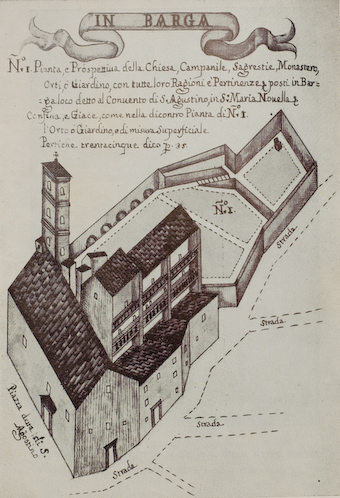 IN BARGA
N.º 1 Pianta, e Prospettiva della Chiesa, Campanile, Sagrestie, Monastero,
Orti, e Giardino, con tutte loro Ragioni e Pertinenze posti in Bar=
=ga loco detto al Conuento di S. Agustino, in S. Maria Nouella
Confina, e Giace, come nella dicontro Pianta di N.º 1.
l'Orto o Giardino, e di misura Superficiale
Pertiche trentacinque dico 35.
N.º 1.
Strada
Strada
Strada
Strada
Piazza di S.
Agostino